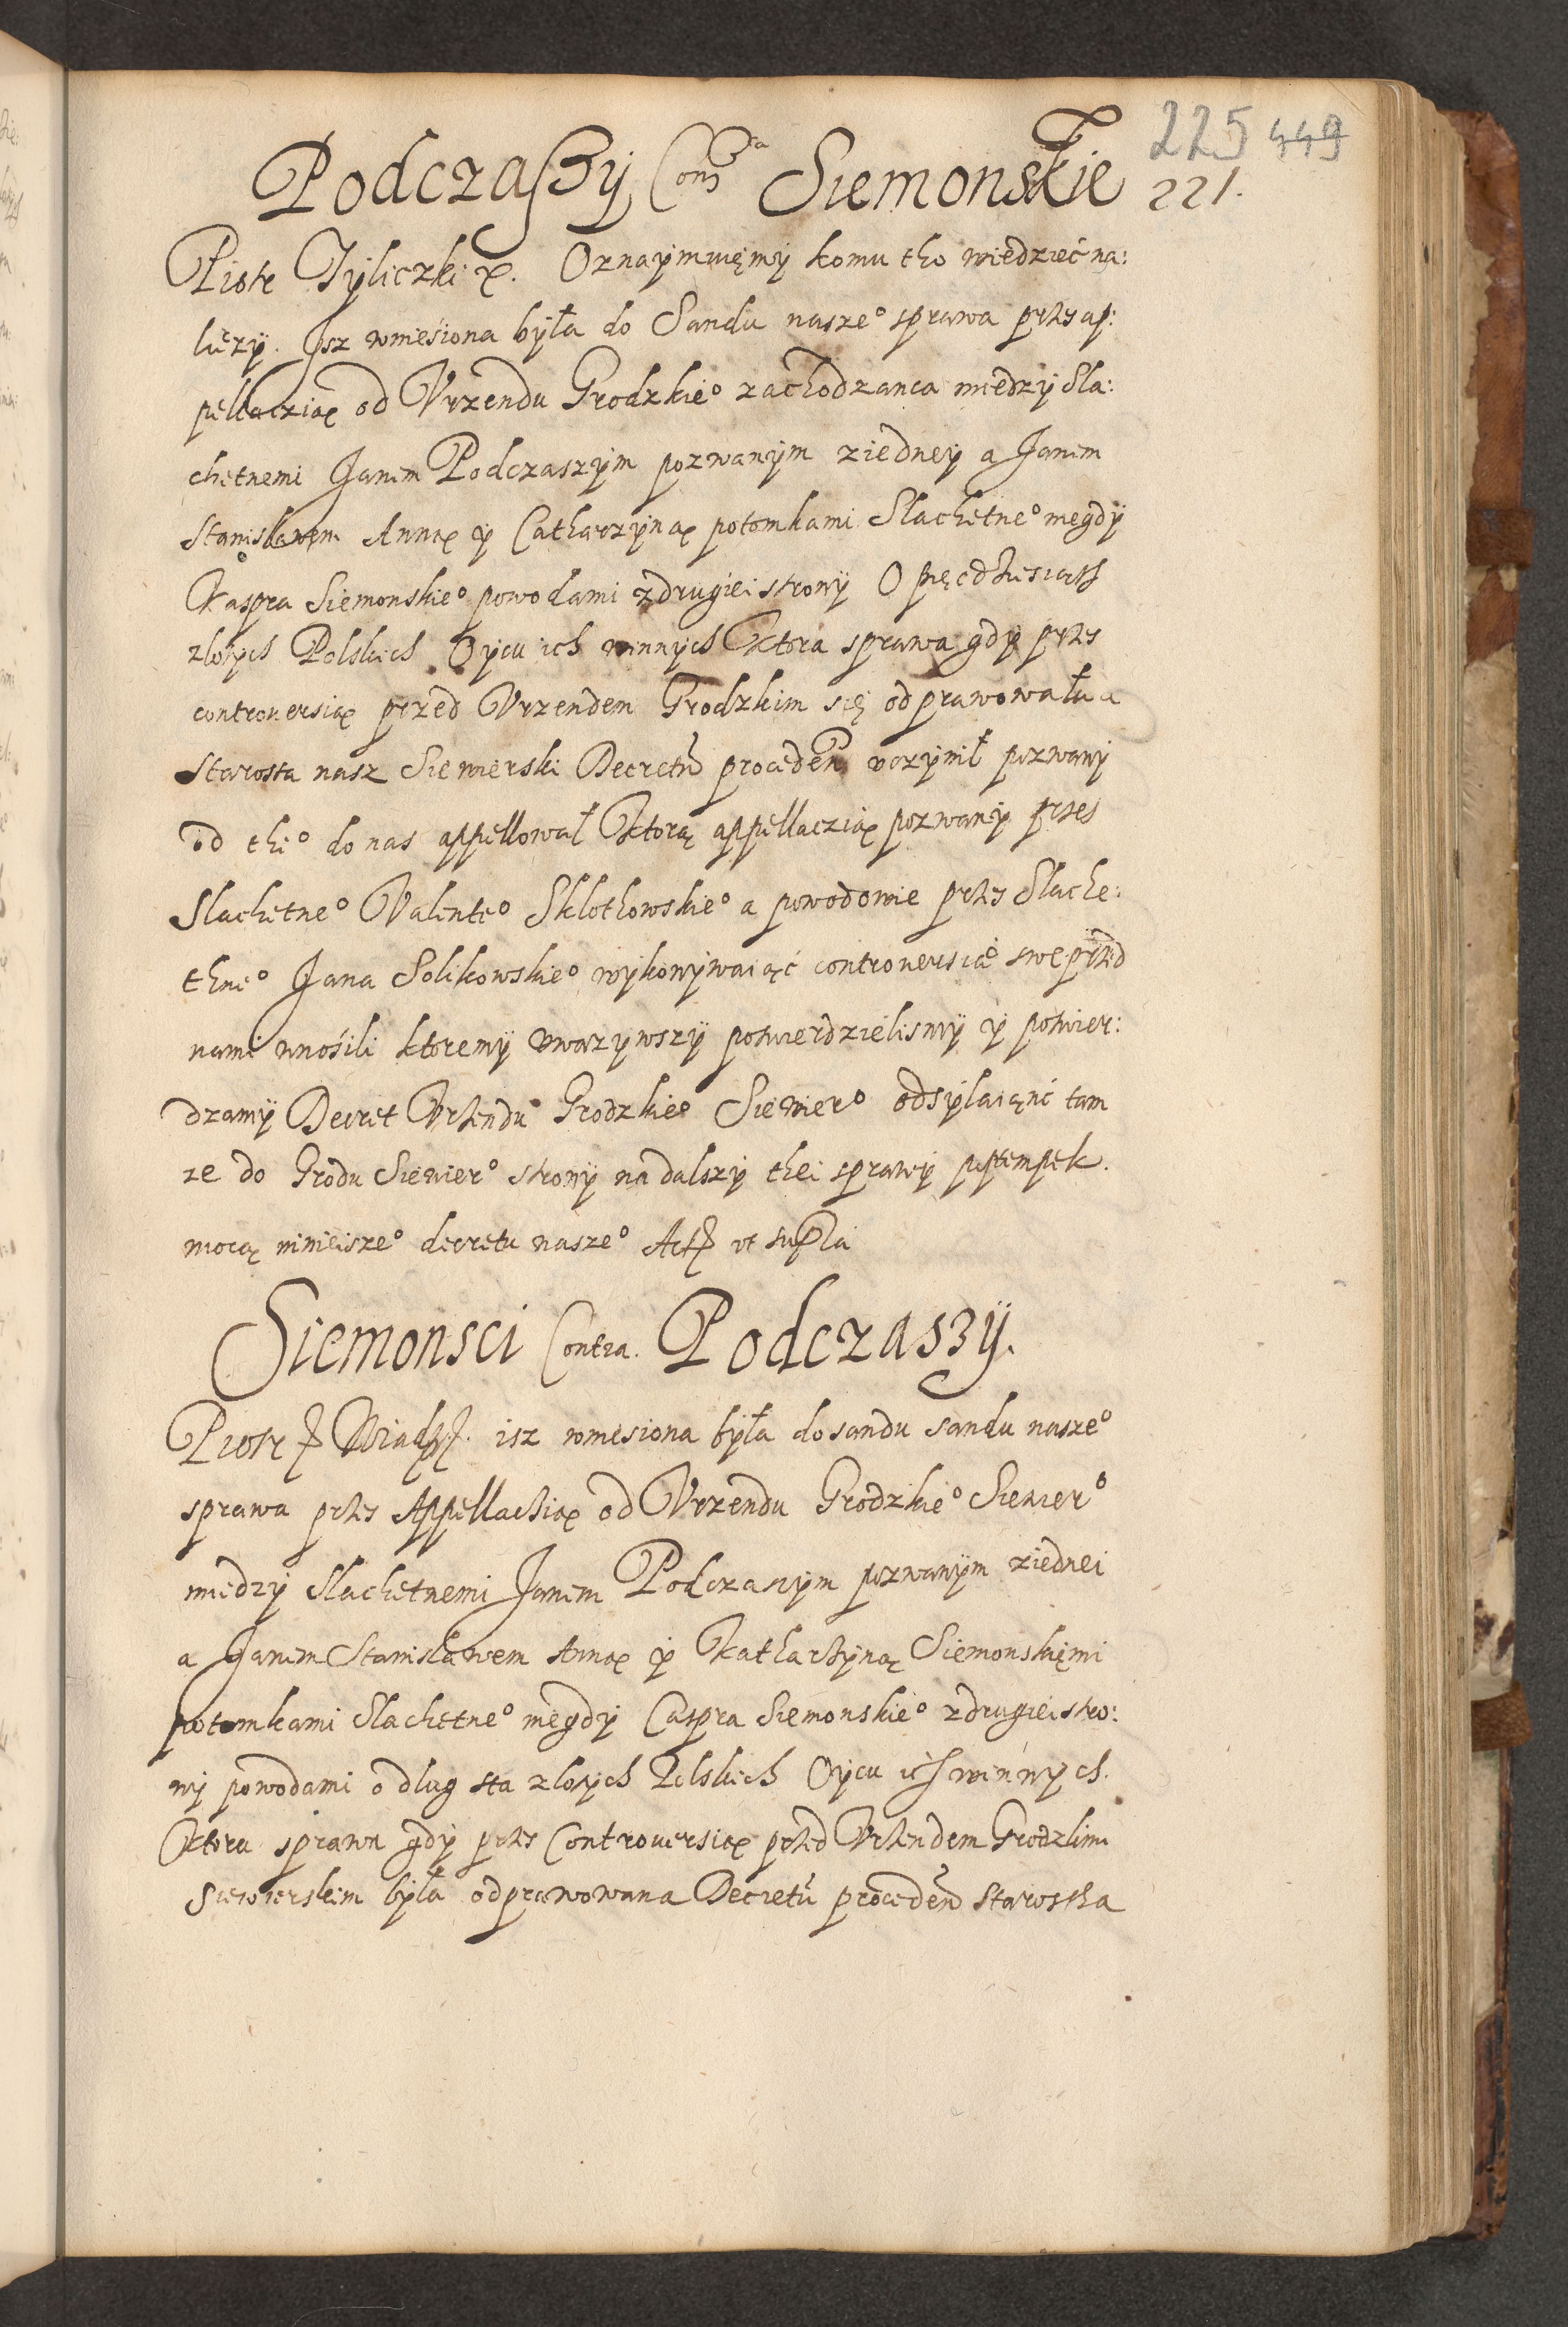 225 449
Podczaszÿ Con<sup>ra</sup> Siemonskie 221.
Piotr Tÿliczki ꝛ. Oznaÿmuięmÿ komu tho wiedzieć na:
lieżÿ. Isz wniesiona była do Sandu nasze° sprawa przes ap:
pellacziąe od Vrzendu Grodzkie° zachodzanca miedzÿ Sla:
chetnemi Janem Podczaszÿm pozwanÿm ziednej a Janem
Stanislawem Annąe ÿ Catharzÿnąe potomkami Slachetne° niegdÿ
Kaspra Siemonskie° powodami zdrugiei stronÿ O pięcdżiesiath
zlotÿch Polskich Oÿcu ich winnÿch Ktora sprawa gdÿ przes
controuersiąe przed Vrzendem Grodzkim się odprawowała a
Starosta nasz Siewierski Decretũ proceden vczÿnił pozwanÿ
od the° do nas appellował Ktorą appellacziąe pozwanÿ przes
Slachetne° Valente° Sklothowskie° a powodowie przes Slache:
thne° Jana Solikowskie° wÿkonÿwaiąć controuersiae swe przed
nami wnośili ktore mÿ vwazÿwszÿ potwierdzielismÿ ÿ potwier:
dzamÿ Decret Vrżendu Grodzkie° Siewier° odsÿlaiąnć tam
ze do Grodu Siewier° stronÿ na dalszÿ thei sprawÿ postempek.
mocą ninieisze° decretu nasze° Act vt supra
Siemonsci Contra. Podczaszÿ.
Piotr Wiad. isz wniesiona była do sandu sandu nasze°
sprawa przes Appellacżiąe od Vrzendu Grodzkie° Siewier°
miedzÿ Slachetnemi Janem Podczaszÿm pozwanÿm ziednei
a Janem Stanisławem Annąe ÿ Katharżÿną Siemonskięmi
potomkami Slachetne° niegdÿ Caspra Siemonskie° zdrugiei stro:
nÿ powodami o dlug sta zlotÿch Polskich Oÿcu ich winnÿch.
Ktora sprawa gdÿ przes Controuersiąe przed Vrżendem Grodzkim
Siewierskim była odprawowana Decretũ proceden Starostha